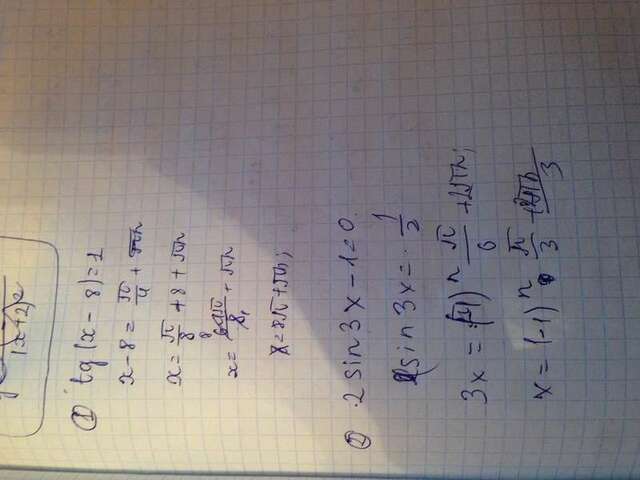 (x+2)²
① tg(x-8)=1
x-8=π/4+πn
x=π/8+8+πn
x=π/8+πn
x=8π+πn;
② 2sin3x-1=0
sin3x=1/2
3x=(-1)ⁿ π/6+2πn;
x=(-1)ⁿ π/3+2πn/3